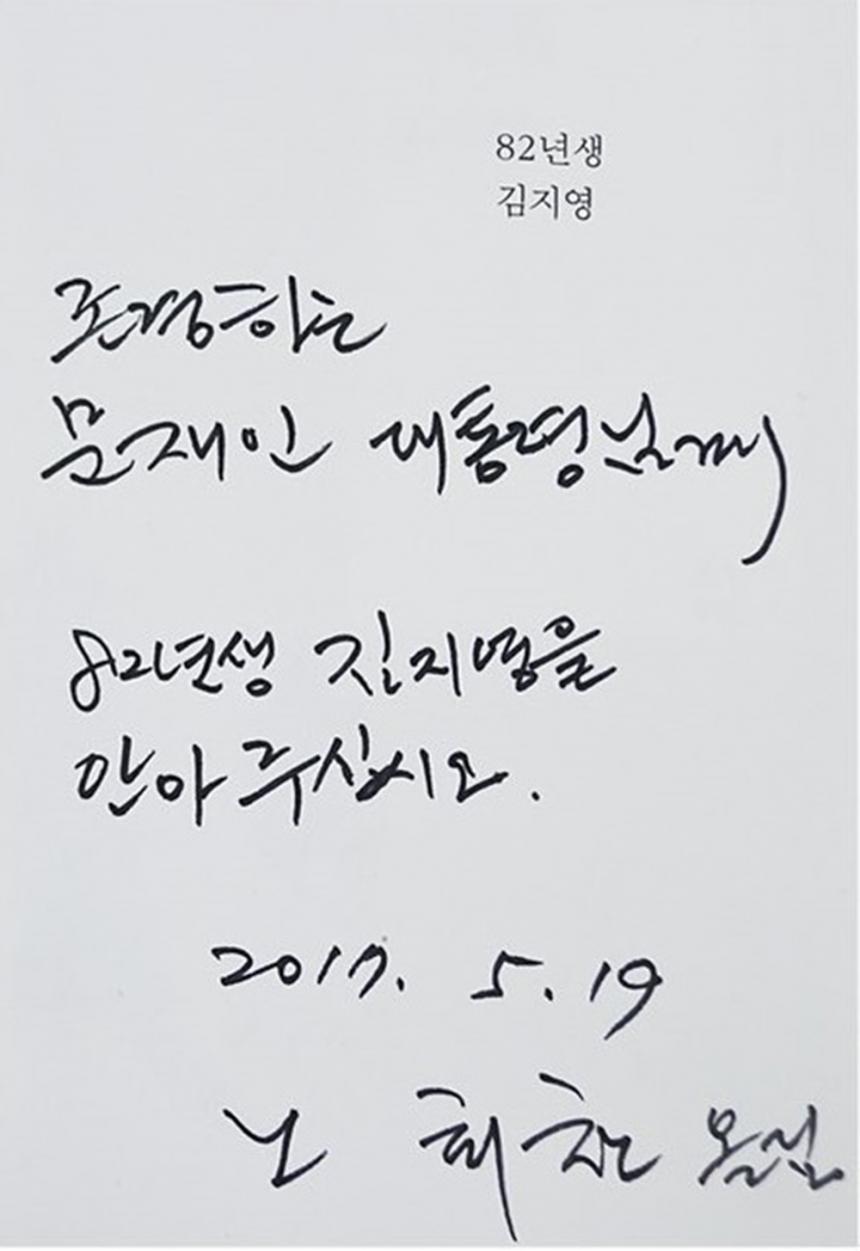 82년생
김지영
존경하는
문재인 대통령님께
82년생 김지영을
안아 주십시오.
2017. 5. 19
노 회찬 올림